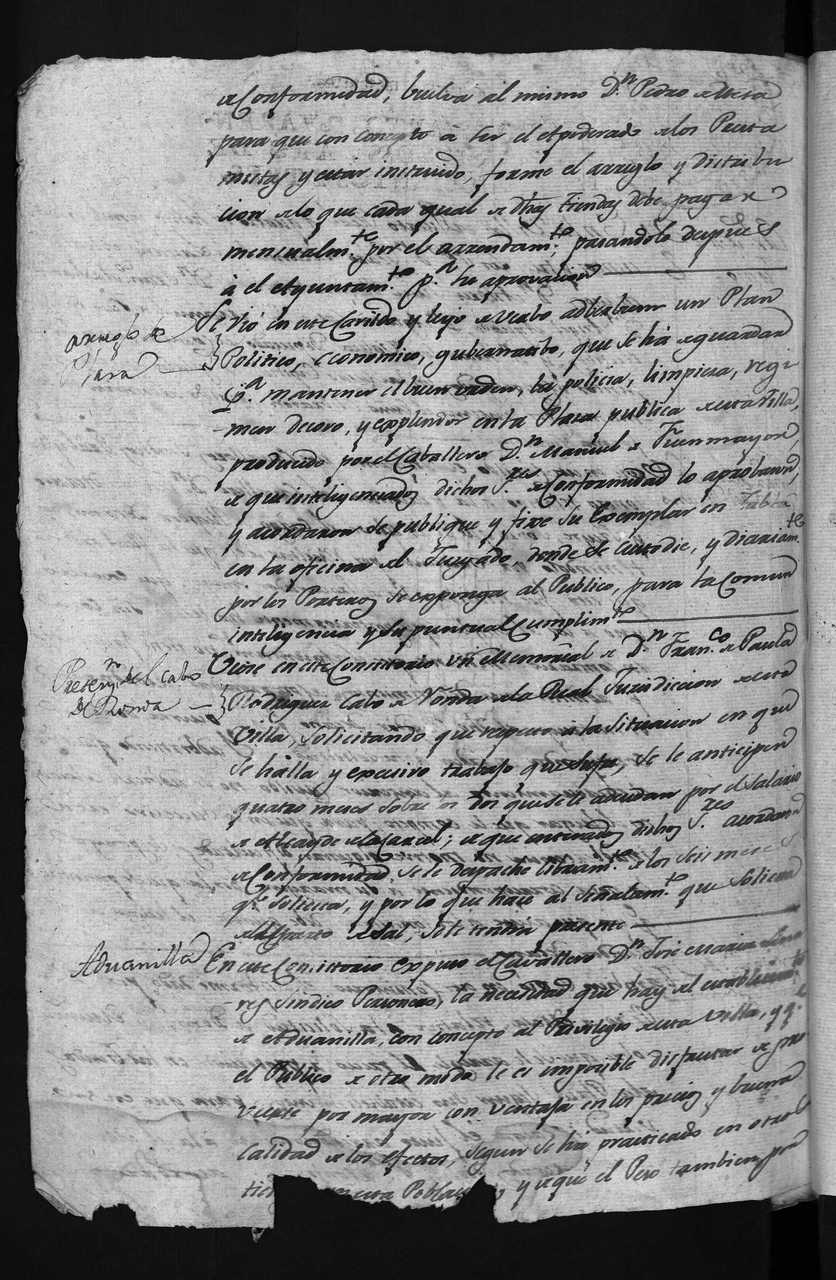 de Conformidad, buelva al mismo D.n Pedro de
para que con concepto a ser el Apoderado de los
y estar instruido, forme el arreglo y distribu
cion de lo que cada qual de dhas tiendas debe pagar
mensualm.te por el arrendam.to, pasandolo despues
á el Ayuntam.to p.a su aprovacion
arreglo de
Plaza
Se vió en este Cavildo y leyó de verbo adberbum un Plan
Politico, economico, gubernatibo, que se há de guardar
p.a mantener el buen orden, la policia, limpieza, regi
men decoro, y explendor en la Plaza publica de esta Villa,
producido por el Caballero D.n Manuel de Fuenmayor,
de que inteligenciados dichos S.res de Conformidad lo aprobaron,
y acordaron se publique, y fixe su Exemplar en Tabla
en la oficina del Juzgado, donde se Custodie, y diariam.te
por los Porteros se exponga al Publico, para la Comun
inteligencia y su puntual Cumplim.to
Presen.n del Cabo
de Ronda
Viose en este Consistorio un Memorial de D.n Fran.co de Paula
Rodriguez Cabo de Ronda de la Real Jurisdicion de esta
Villa, solicitando que respecto á la situacion en que
se hálla y excesivo trabajo que sufre, se le anticipen
quatro meses sobre los dos que se le adeudan por el Salario
de Alcayde de la Carcel; de que enterados dichos S.res acordaron
de Conformidad, se le despache libram.to de los seis meses
q.e Solicita, y por lo que hace al Señalam.to que Solicita
se tendrá presente
Aduanilla
En este Consistorio expuso el Cavallero D.n José Maria
res Sindico Personero, la necesidad que hay del establecim.to
de Aduanilla, con concepto al Privilegio de esta Villa, y q.e
el Publico de otro modo le es imposible disfrutar de
por mayor con ventaja en los precios y buena
calidad de los efectos, segun se há practicado en otros
en esta Poblac y de que el Peso tambien